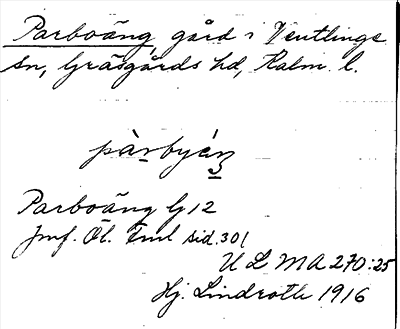 Parboäng, gård i Ventlinge
sn, Gräsgårds hd, Kalm. l.
pàrbyäŋ
Parboäng G 12
Jmf. Öl. Fml sid. 301
ULMA 270:25
Hj. Lindroth 1916